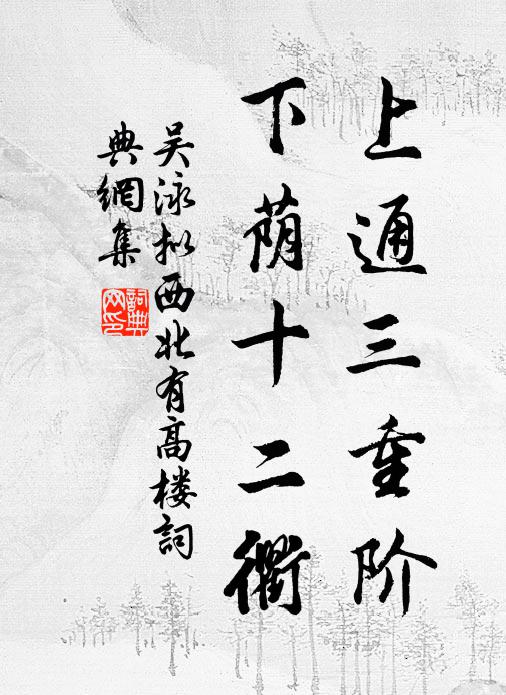 上通三重阶
下荫十二衢
吴泳拟西北有高楼词
典網集
詞典
网印